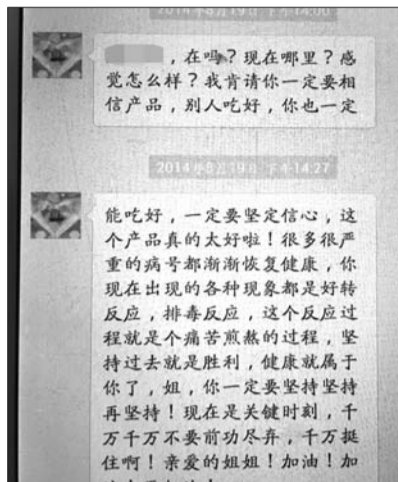 2014年8月19日 下午14:00
，在吗？现在哪里？感
觉怎么样？我肯请你一定要相
信产品，别人吃好，你也一定
2014年8月19日 下午14:27
能吃好，一定要坚定信心，这
个产品真的太好啦！很多很严
重的病号都渐渐恢复健康，你
现在出现的各种现象都是好转
反应，排毒反应，这个反应过
程就是个痛苦煎熬的过程，坚
持过去就是胜利，健康就属于
你了，姐，你一定要坚持坚持
再坚持！现在是关键时刻，千
万千万不要前功尽弃，千万挺
住啊！亲爱的姐姐！加油！加